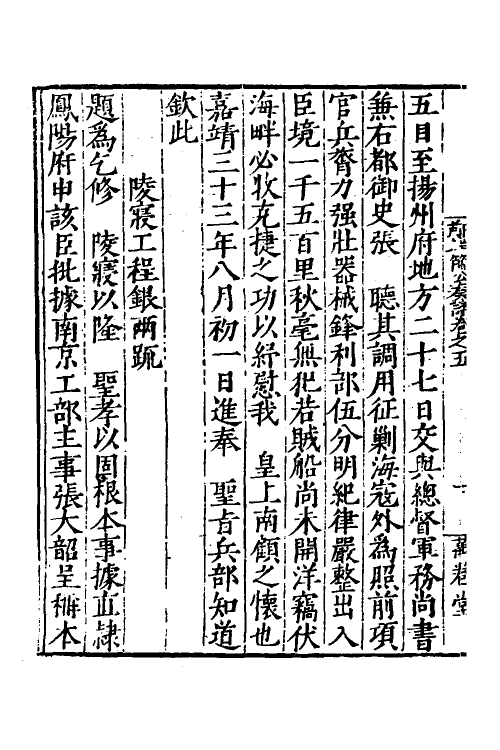 五日至揚州府地方二十七日交與總督軍務尚書
兼右都御史張　聽其調用征剿海寇外為照前項
官兵膂力强壯器械鋒利部伍分明紀律嚴整出入
臣境一千五百里秋毫無犯若賊船尚未開洋竊伏
海畔必收克捷之功以紓慰我　皇上南顧之懷也
嘉靖三十三年八月初一日進奉　聖旨兵部知道
欽此
陵寢工程銀兩疏
題為乞修　陵寢以隆　聖孝以固根本事據直隸
鳳陽府申該臣批據南京工部主事張大韶呈稱本
奏議卷之五